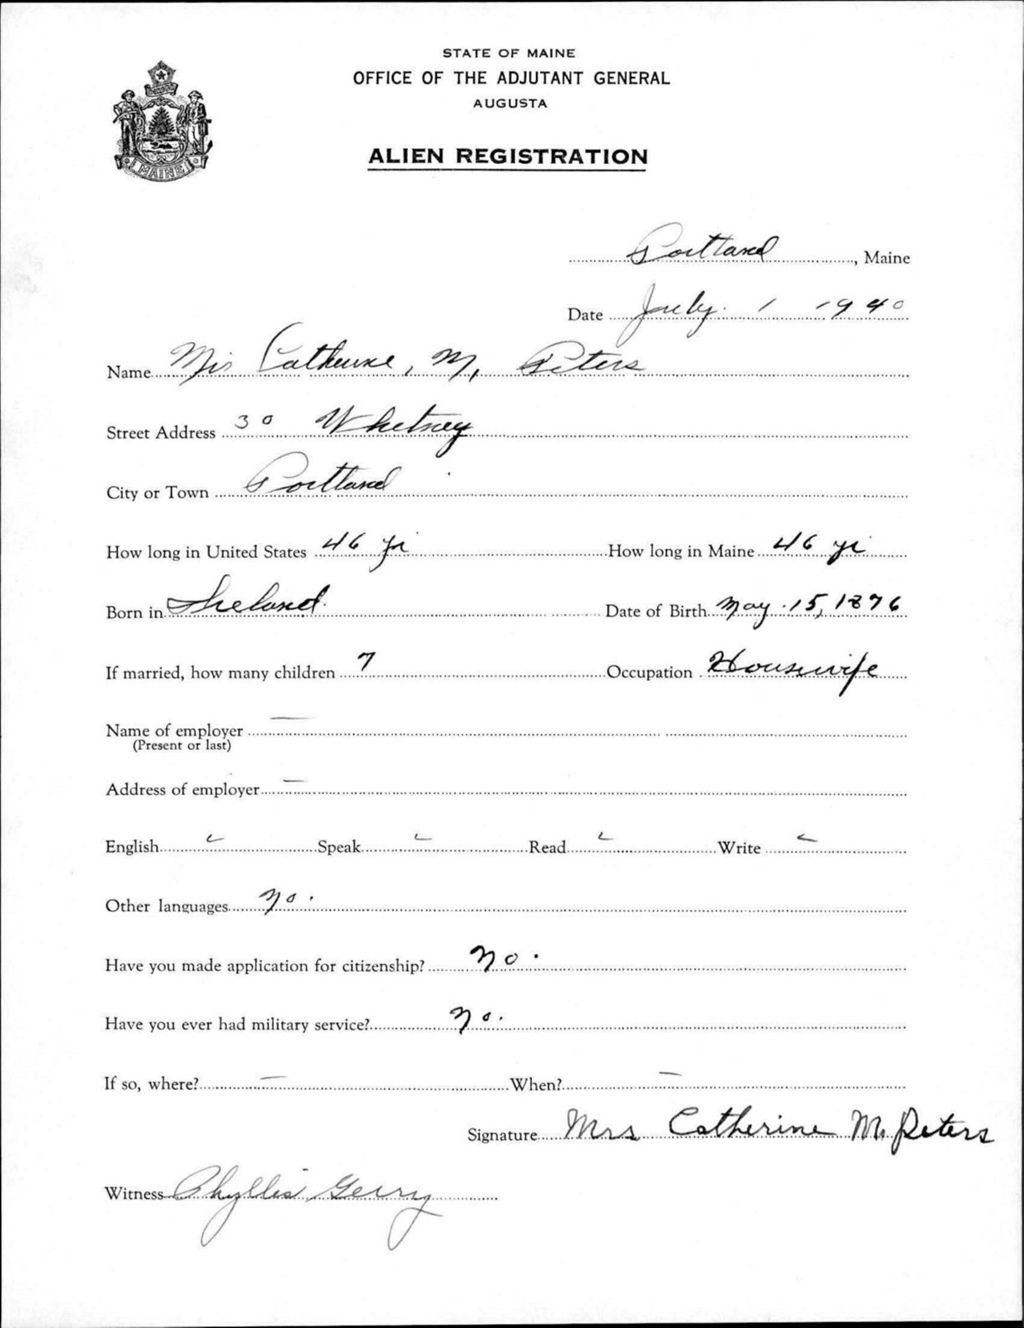 STATE OF MAINE
OFFICE OF THE ADJUTANT GENERAL
AUGUSTA
ALIEN REGISTRATION
MAINE
Portland, Maine
Date July 1 1940
Name Mrs Catherine, M, Peters
Street Address 30 Whetney
City or Town Portland
How long in United States 46 yr How long in Maine 46 yr
Born in Ireland. Date of Birth May 15, 1876
If married, how many children 7 Occupation Housewife
Name of employer —
(Present or last)
Address of employer —
English ✓ Speak ✓ Read ✓ Write ✓
Other languages No.
Have you made application for citizenship? No.
Have you ever had military service? No.
If so, where? — When? —
Signature Mrs Catherine M. Peters
Witness Phyllis Gerry